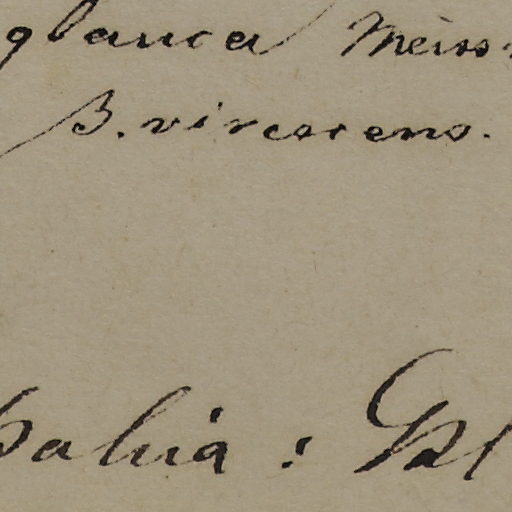 glauca Meiss.
β. virescens.
Bahia: Bl